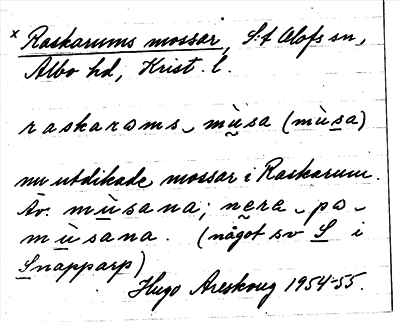 x Raskarums mossar, S:t Olofs sn,
Albo hd, Krist. l.
raskaroms mùsa (mùsa)
nu utdikade mossar i Raskarum.
Äv. mùsana; nera på
mùsana. (något sv S i
Snapparp)
Hugo Areskoug 1954-55.